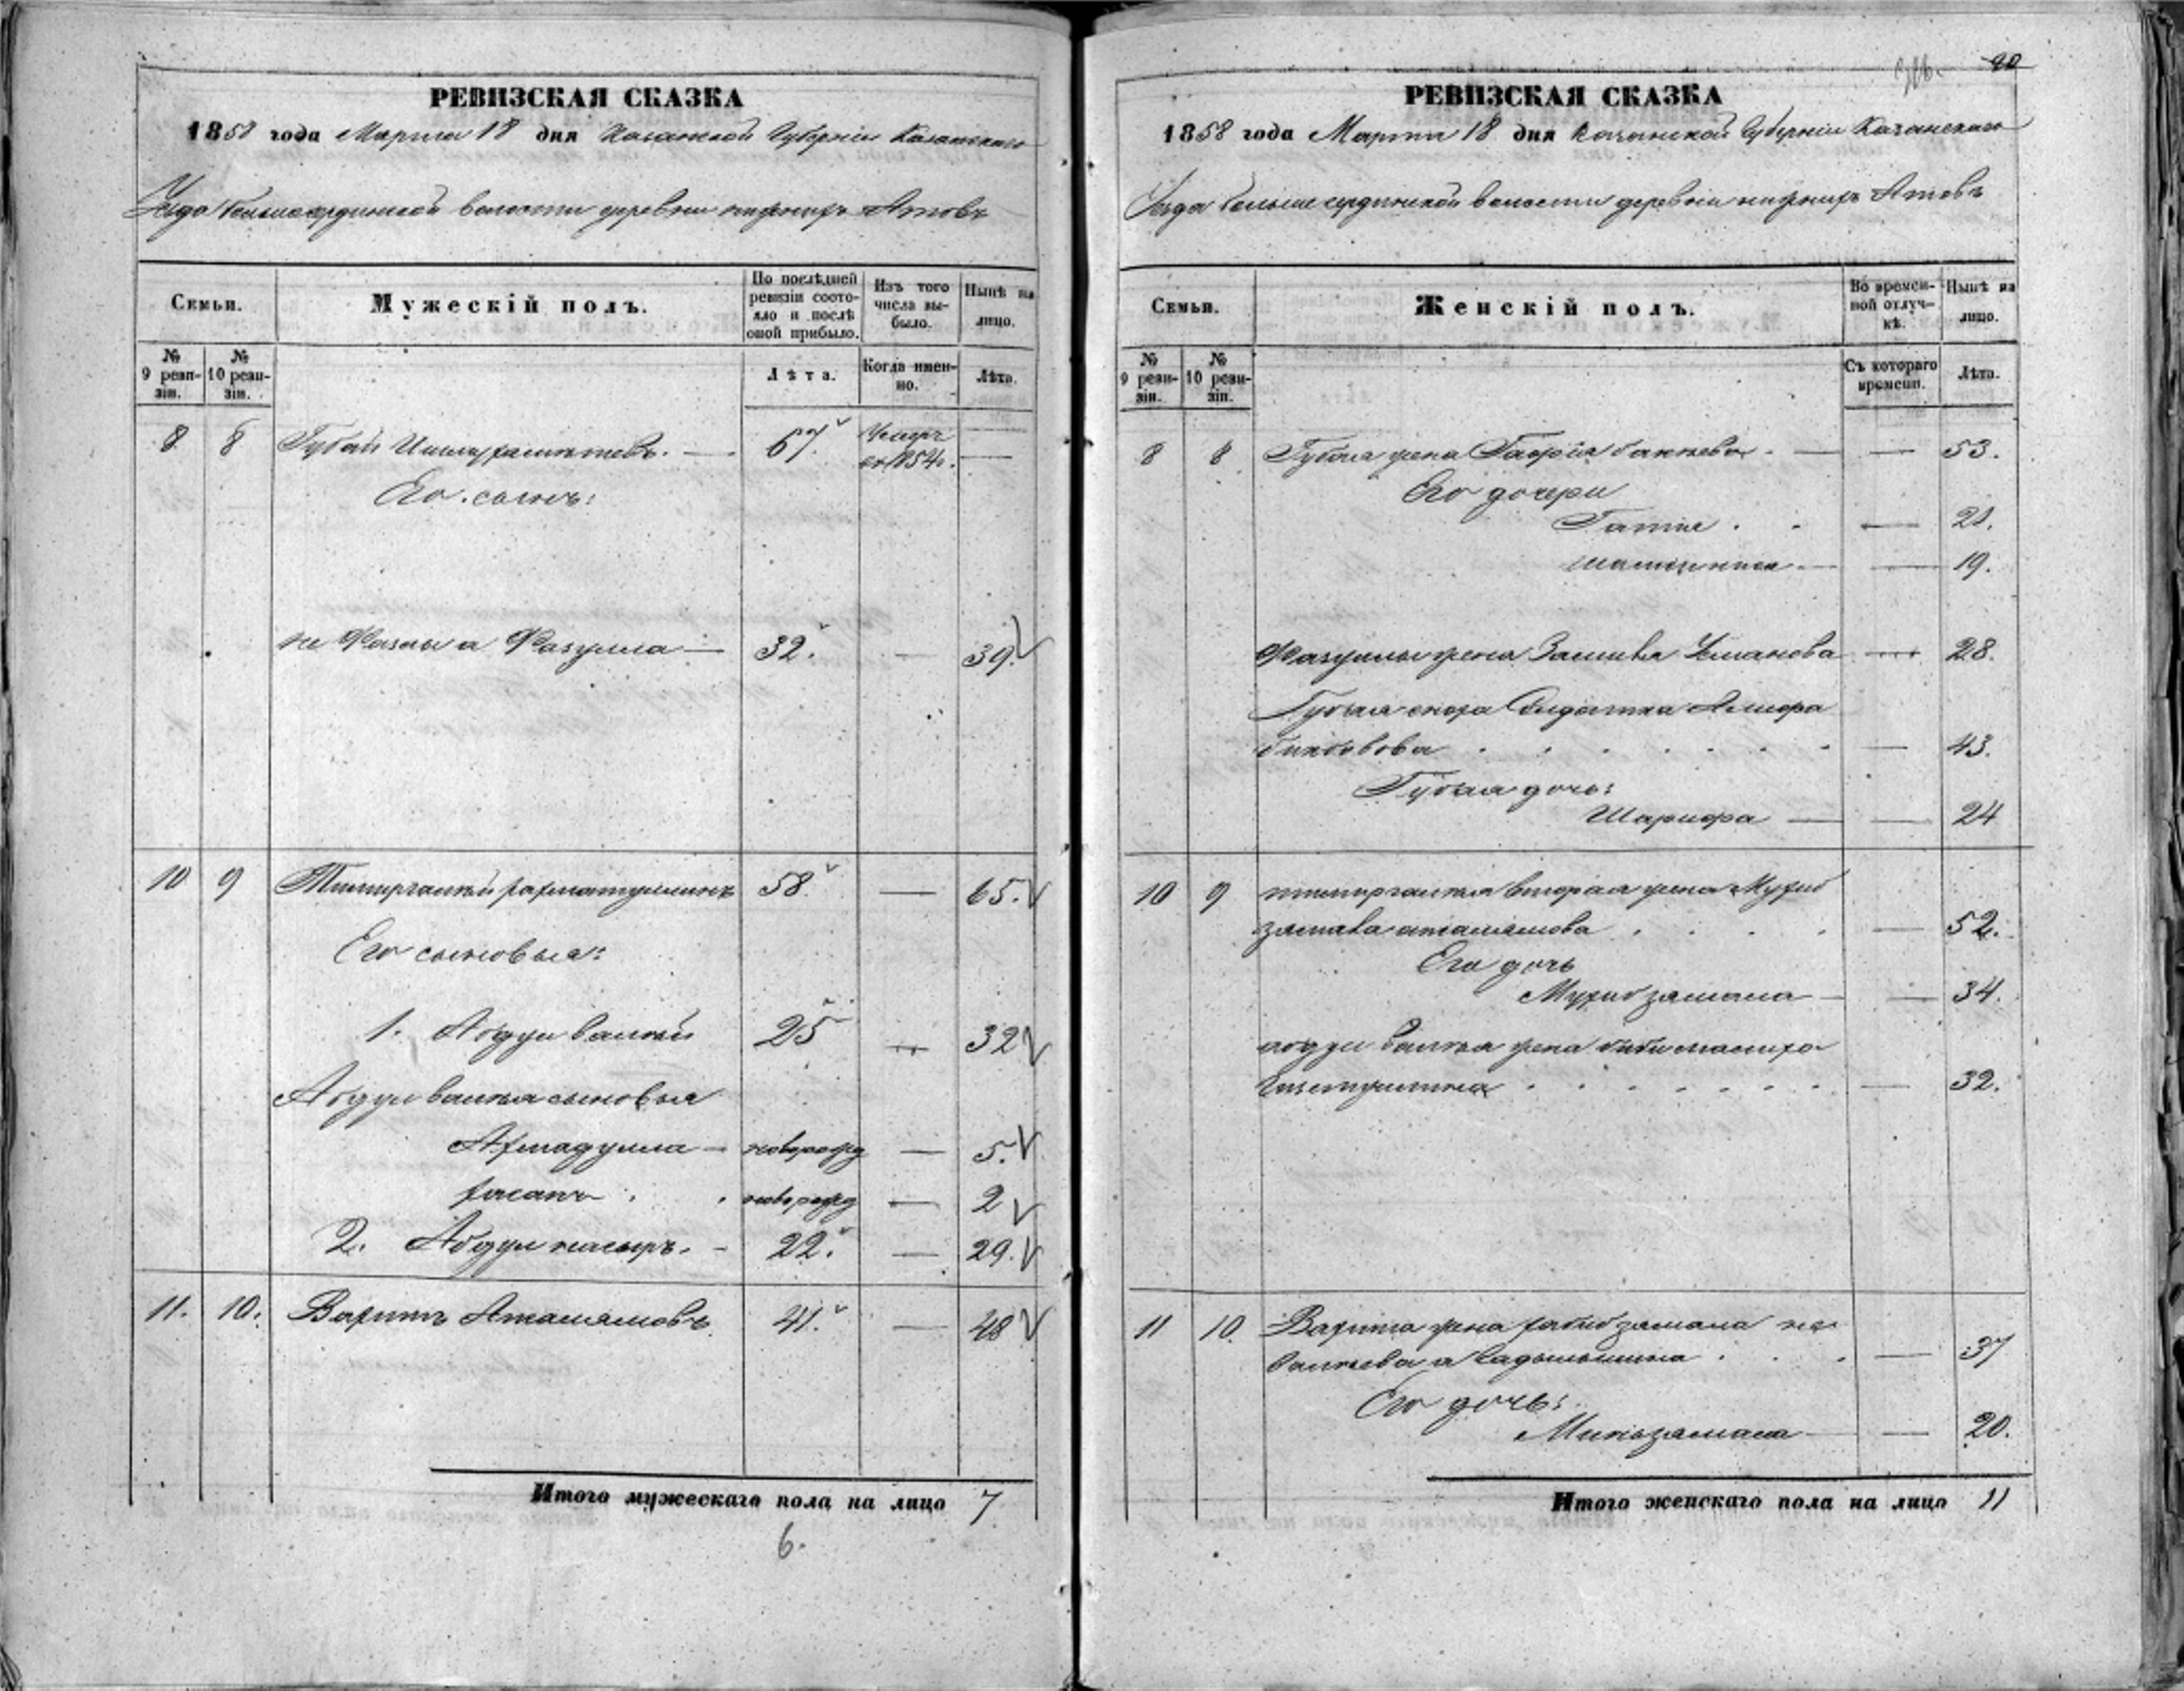 РЕВИЗСКАЯ СКАЗКА
1858 года Марта 18 дня Казанской Губерніи Казанскаго
Уезда большесердинской волости деревни нижнихъ Атовъ
Семьи.
Мужескій полъ.
По послѣдней ревизіи состояло и послѣ оной прибыло.
Изъ того числа выбыло.
Нынѣ на лицо.
№ 9 ревизіи.
№ 10 ревизіи.
Лѣта.
Когда именно.
Лѣта.
8 8 Губай 67. Умеръ
въ 1854.
Его сынъ:
не Фазлы а Фазулла 32. — 39.
10 9 Тимиргалей рахматуллинъ 58. — 65.
Его сыновья:
1. Абдул валей 25 — 32
Абдул валея сыновья
Ахмадулла — новорожд — 5.
хасанъ новорожд — 2
2. Абдул насыръ. 22. — 29.
11. 10. Вахитъ Аталямовъ 41. — 48
Итого мужескаго пола на лицо 7
6.
20
РЕВИЗСКАЯ СКАЗКА
1858 года Марта 18 дня Казанской Губерніи Казанскаго
Уезда большесердинской волости деревни нижнихъ Атовъ
Семьи.
Женскій полъ.
Во временной отлучкѣ.
Нынѣ на лицо.
№ 9 ревизіи.
№ 10 ревизіи.
Съ котораго времени.
Лѣта.
8 8 Губая жена — 53.
Его дочери
— 21.
— 19.
Фазуллы жена Залика Усманова — 28.
Губая сноха Солдатка
— 43.
Губая дочь:
Шарифа — 24
10 9 тимиргалея вторая жена Мухиб
зямала аталямова — 52.
Его дочь
Мухибзямала — 34.
абдул валея жена биби малиха
— 32.
11 10. Вахита жена хабибзямала не
валеева а — 37
Его дочь:
Миньзямала — 20.
Итого женскаго пола на лицо 11